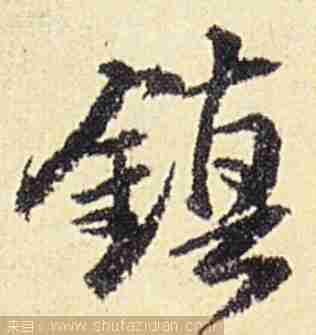 鎮
来自：www.shufazidian.com